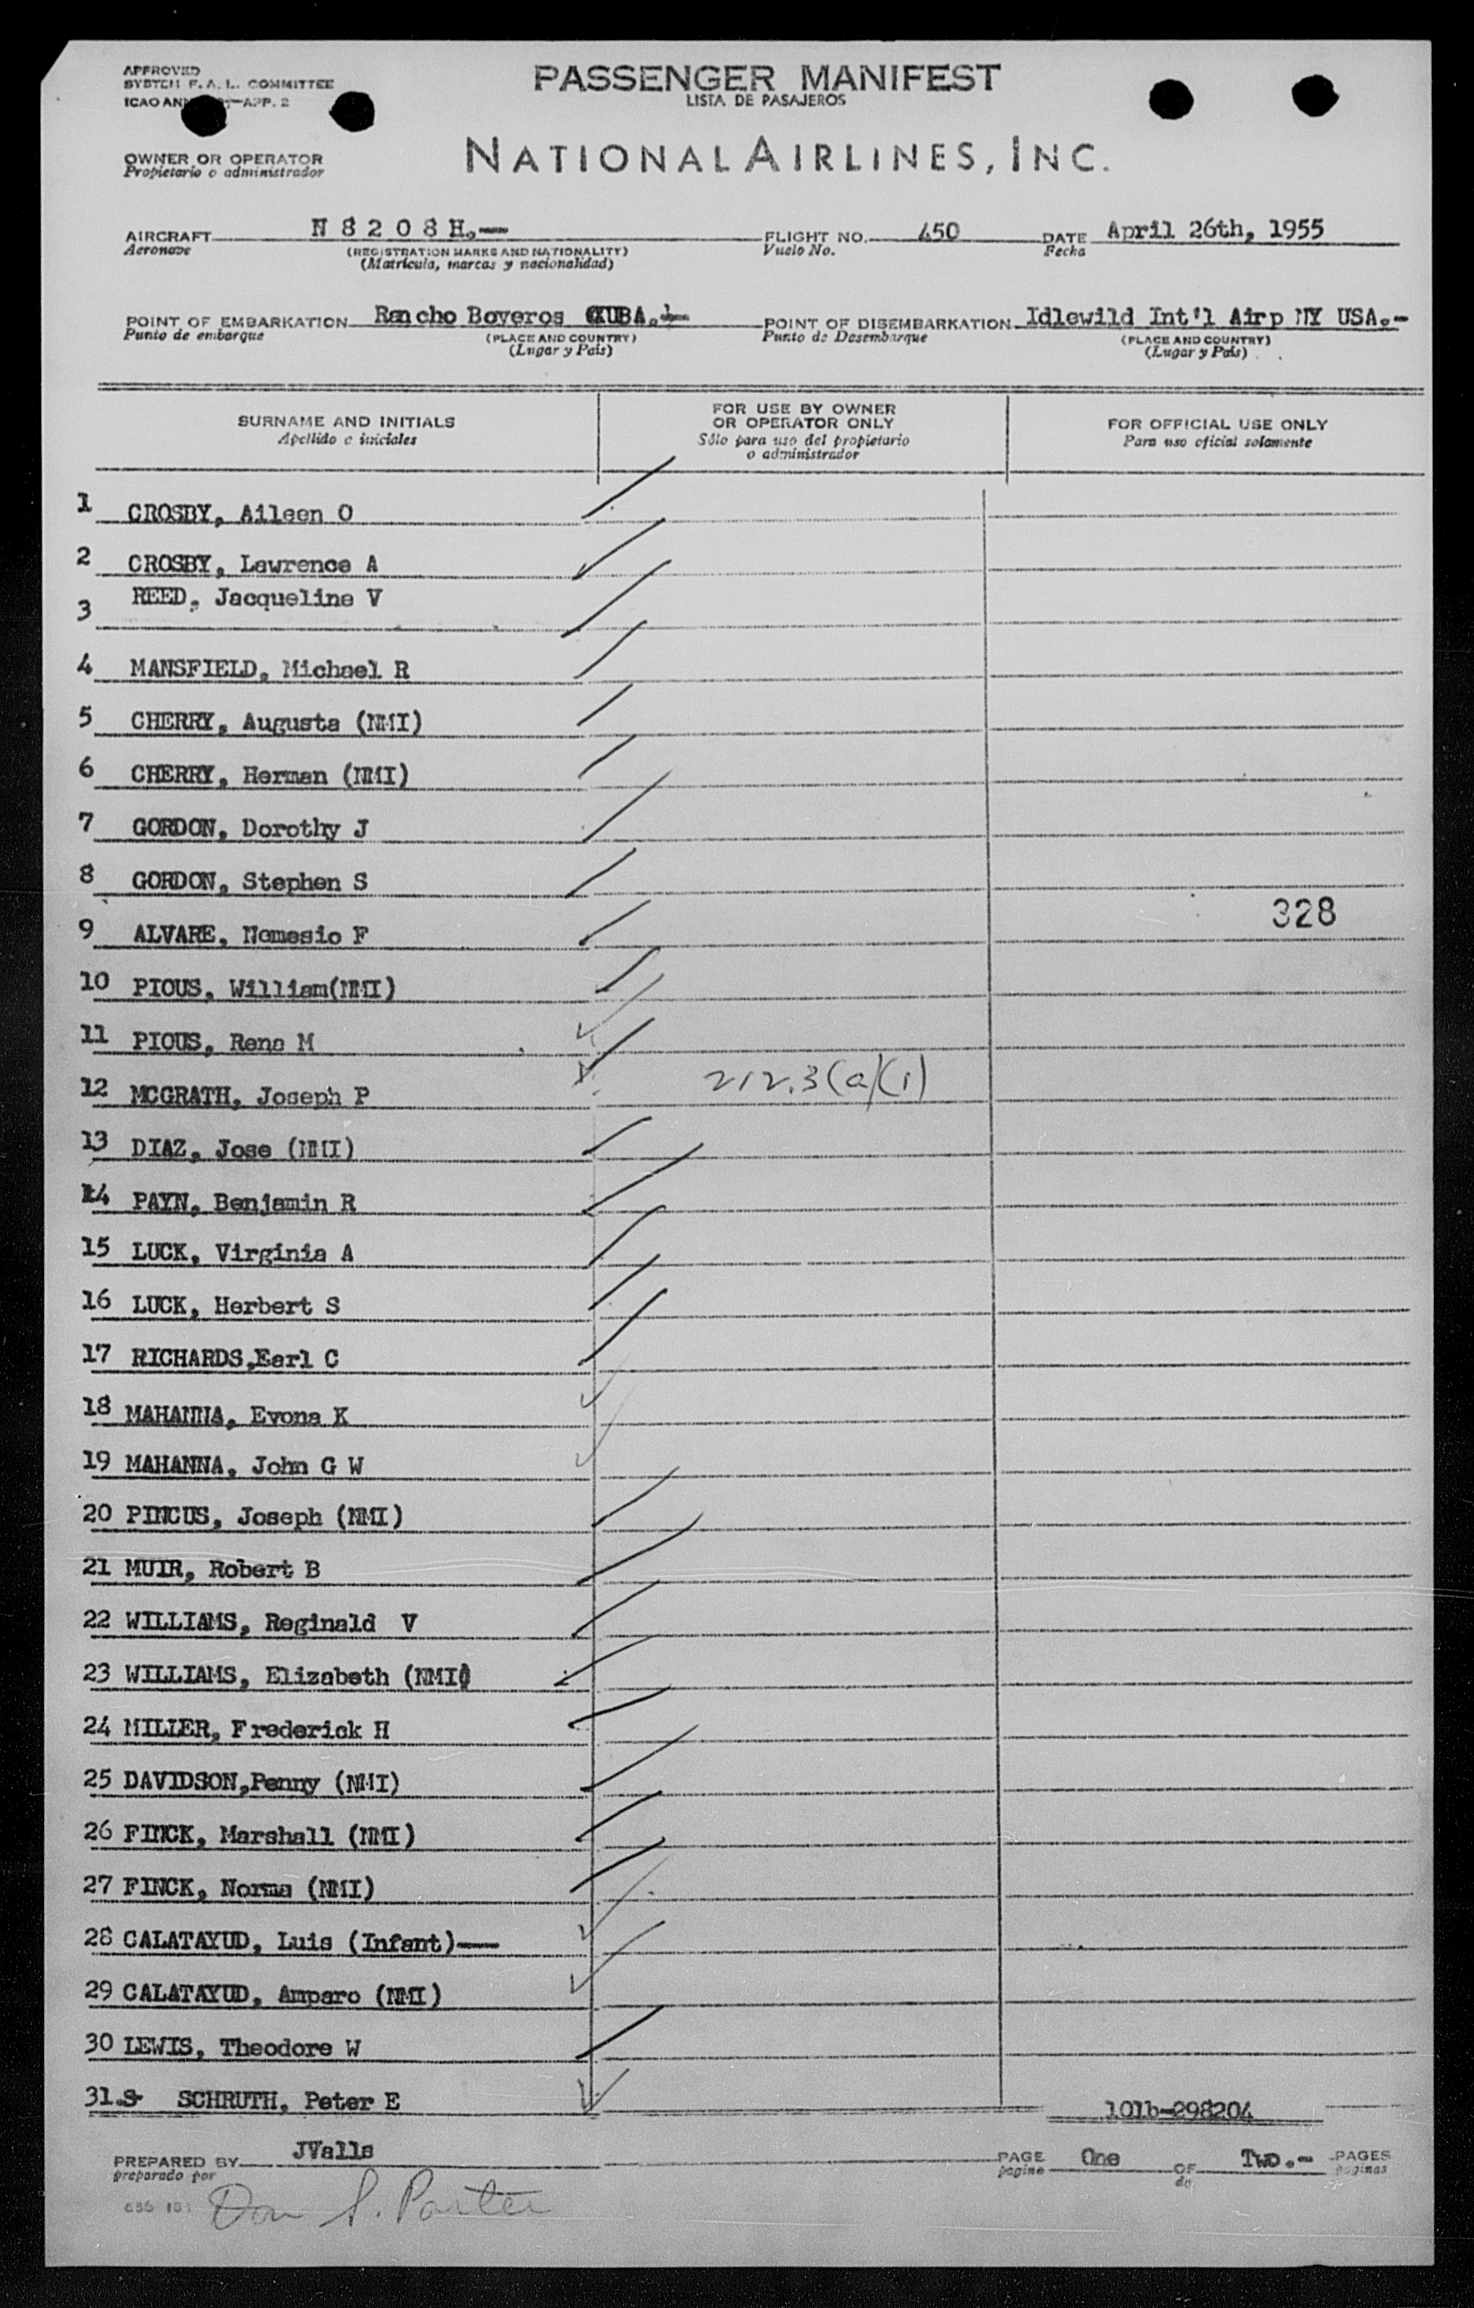 APPROVED
SYSTEM F. A. L. COMMITTEE
ICAO APP. 2
PASSENGER MANIFEST
LISTA DE PASAJEROS
OWNER OR OPERATOR
Propietario o administrador
NATIONAL AIRLINES, INC.
AIRCRAFT N 8 2 0 8 H.-- FLIGHT NO. 450 DATE April 26th, 1955
Aeronave (REGISTRATION MARKS AND NATIONALITY) Vuelo No. Fecha
(Matrícula, marcas y nacionalidad)
POINT OF EMBARKATION Rancho Boyeros CUBA.- POINT OF DISEMBARKATION Idlewild Int'l Airp NY USA.-
Punto de embarque (PLACE AND COUNTRY) Punto de Desembarque (PLACE AND COUNTRY)
(Lugar y País) (Lugar y País)
SURNAME AND INITIALS FOR USE BY OWNER OR OPERATOR ONLY FOR OFFICIAL USE ONLY
Apellido e iniciales Sólo para uso del propietario o administrador Para uso oficial solamente
1 CROSBY, Aileen O
2 CROSBY, Lawrence A
3 REED, Jacqueline V
4 MANSFIELD, Michael R
5 CHERRY, Augusta (NMI)
6 CHERRY, Herman (NMI)
7 GORDON, Dorothy J
8 GORDON, Stephen S
328
9 ALVARE, Nemesio F
10 PIOUS, William(NMI)
11 PIOUS, Rene M
12 MCGRATH, Joseph P 212.3(a)(1)
13 DIAZ, Jose (NMI)
14 PAYN, Benjamin R
15 LUCK, Virginia A
16 LUCK, Herbert S
17 RICHARDS,Earl C
18 MAHANNA, Evona K
19 MAHANNA, John G W
20 PINCUS, Joseph (NMI)
21 MUIR, Robert B
22 WILLIAMS, Reginald V
23 WILLIAMS, Elizabeth (NMI)
24 MILLER, Frederick H
25 DAVIDSON,Penny (NMI)
26 FINCK, Marshall (NMI)
27 FINCK, Norma (NMI)
28 CALATAYUD, Luis (Infant)--
29 CALATAYUD, Amparo (NMI)
30 LEWIS, Theodore W
31.S- SCHRUTH, Peter E
101b-298204
PREPARED BY JValls PAGE One OF Two.- PAGES
preparado por pagina de paginas
Don S. Porter